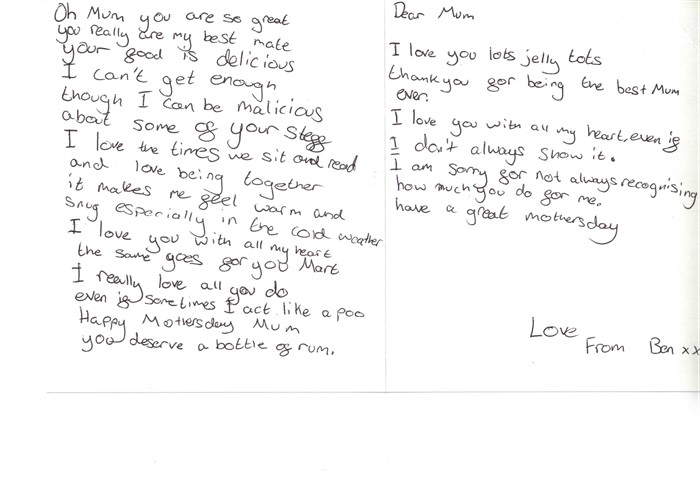 Oh Mum you are so great
you really are my best mate
your food is delicious
I can't get enough
though I can be malicious
about some of your stuff
I love the times we sit and read
and love being together
it makes me feel warm and
snug especially in the cold weather
I love you with all my heart
the same goes for you Mart
I really love all you do
even if sometimes I act like a poo
Happy Mothersday Mum
you deserve a bottle of rum.
Dear Mum
I love you lots jelly tots
thankyou for being the best Mum
ever.
I love you with all my heart, even if
I don't always show it.
I am sorry for not always recognising
how much you do for me.
have a great mothersday
Love
From Ben xx